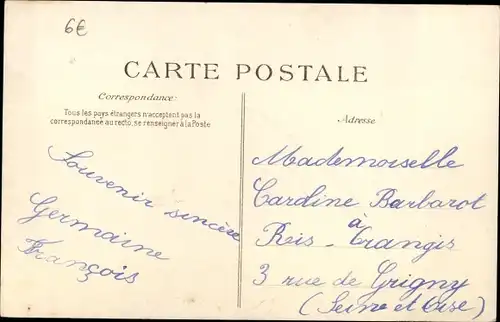 6€
CARTE POSTALE
Correspondance:
Tous les pays étrangers n'acceptent pas la
correspondance au recto, se renseigner à la Poste
Souvenir sincère
Germaine
François
Adresse
Mademoiselle
Cardine Barbarot
Reis - à Orangis
3 rue de Grigny
(Seine et Oise)